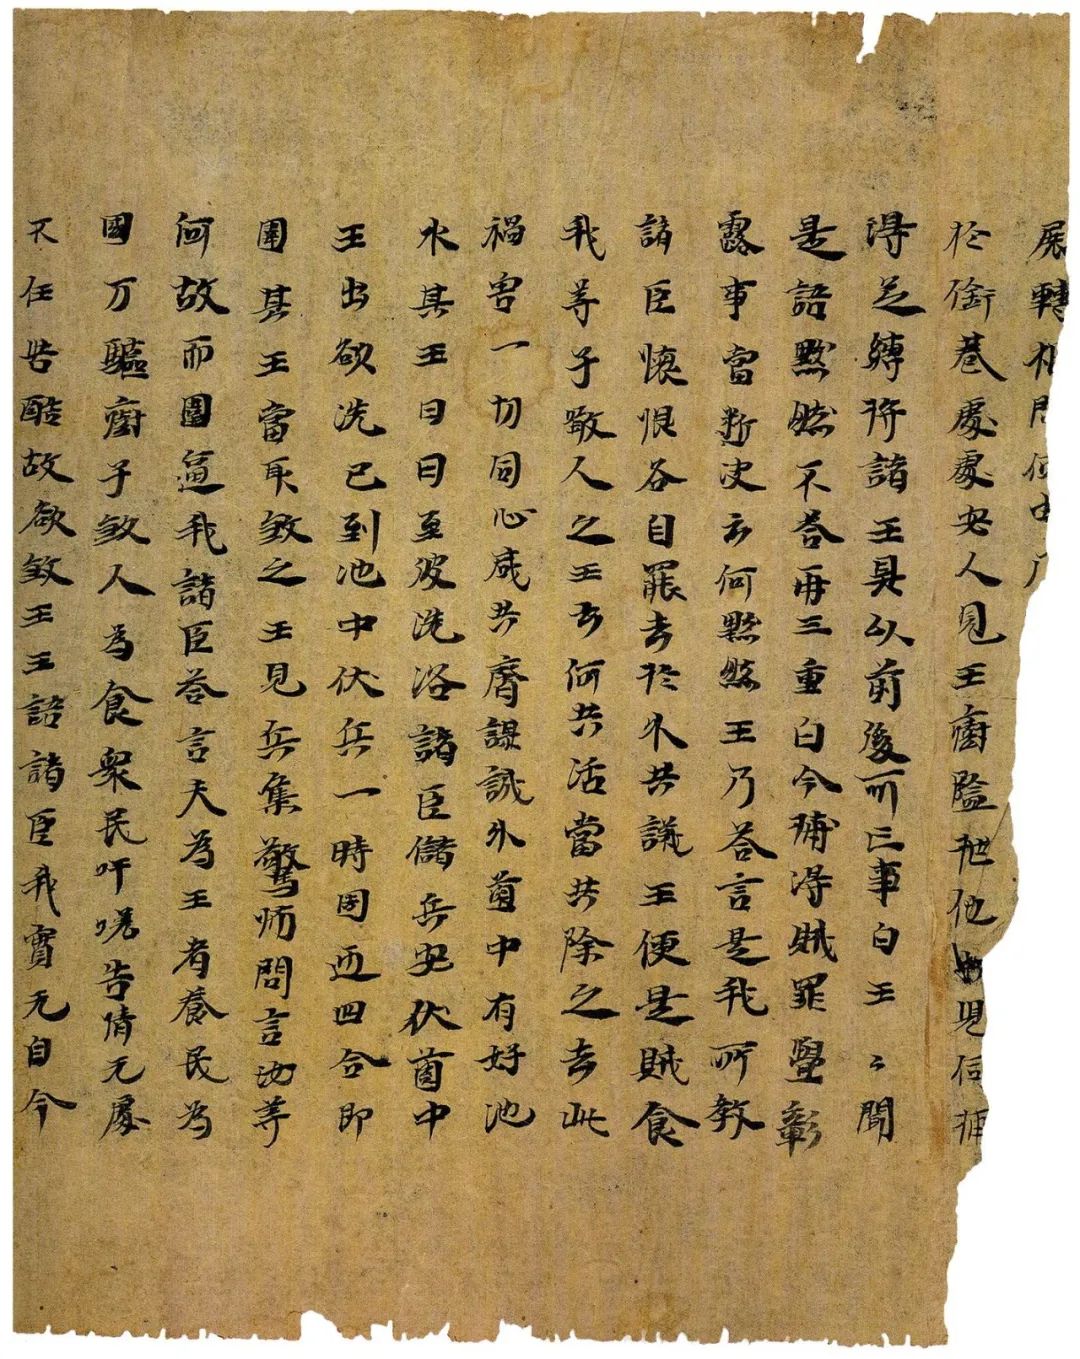 展轉相問何由
於街巷處處安人見王廚監抴他男兒伺捕
得之縛將詣王具以前後所亡事白王〻聞
是語默然不答再三重白今捕得賊罪舋彰
露事當斷決云何默然王乃答言是我所教
諸臣懷恨各自罷去於外共議王便是賊食
我等子噉人之王云何共活當共除之去此
禍害一切同心咸共齊謀誡外薗中有好池
水其王日日至彼洗浴諸臣儲兵安伏薗中
王出欲洗已到池中伏兵一時周迊四合即
圍其王當取煞之王見兵集驚師問言汝等
何故而圍逼我諸臣答言夫為王者養民為
國方驅廚子煞人為食衆民吁嗟告情无處
不任苦酷故欲煞王王語諸臣我實无自今